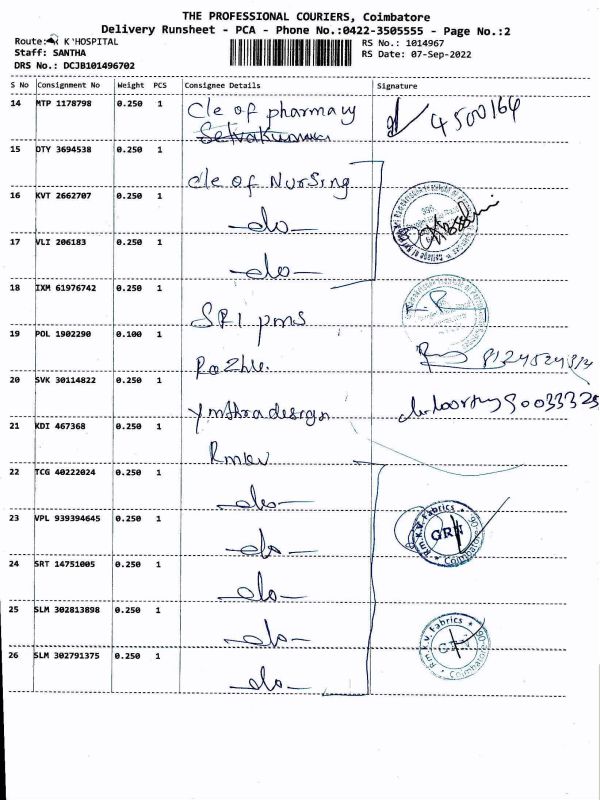 THE PROFESSIONAL COURIERS, Coimbatore
Delivery Runsheet - PCA - Phone No.:0422-3505555 - Page No.:2
Route: K K'HOSPITAL
RS No.: 1014967
Staff: SANTHA
RS Date: 07-Sep-2022
DRS No.: DCJB101496702
S No Consignment No Weight PCS Consignee Details Signature
14 MTP 1178798 0.250 1 Cle of pharmacy 4500164
Selvakumar
15 DTY 3694538 0.250 1
cle of Nursing
16 KVT 2662707 0.250 1
-do-
17 VLI 206183 0.250 1
-do-
18 IXM 61976742 0.250 1
SRI pms
19 POL 1902290 0.100 1
20 SVK 30114822 0.250 1
21 KDI 467368 0.250 1
Rmkv
22 TCG 40222024 0.250 1
-do-
23 VPL 939394645 0.250 1
R.m.K.V. Fabrics
GRN
Coimbatore
-do-
24 SRT 14751005 0.250 1
-do-
25 SLM 302813898 0.250 1
-do-
R.m.K.V. Fabrics
GRN
Coimbatore
26 SLM 302791375 0.250 1
-do-